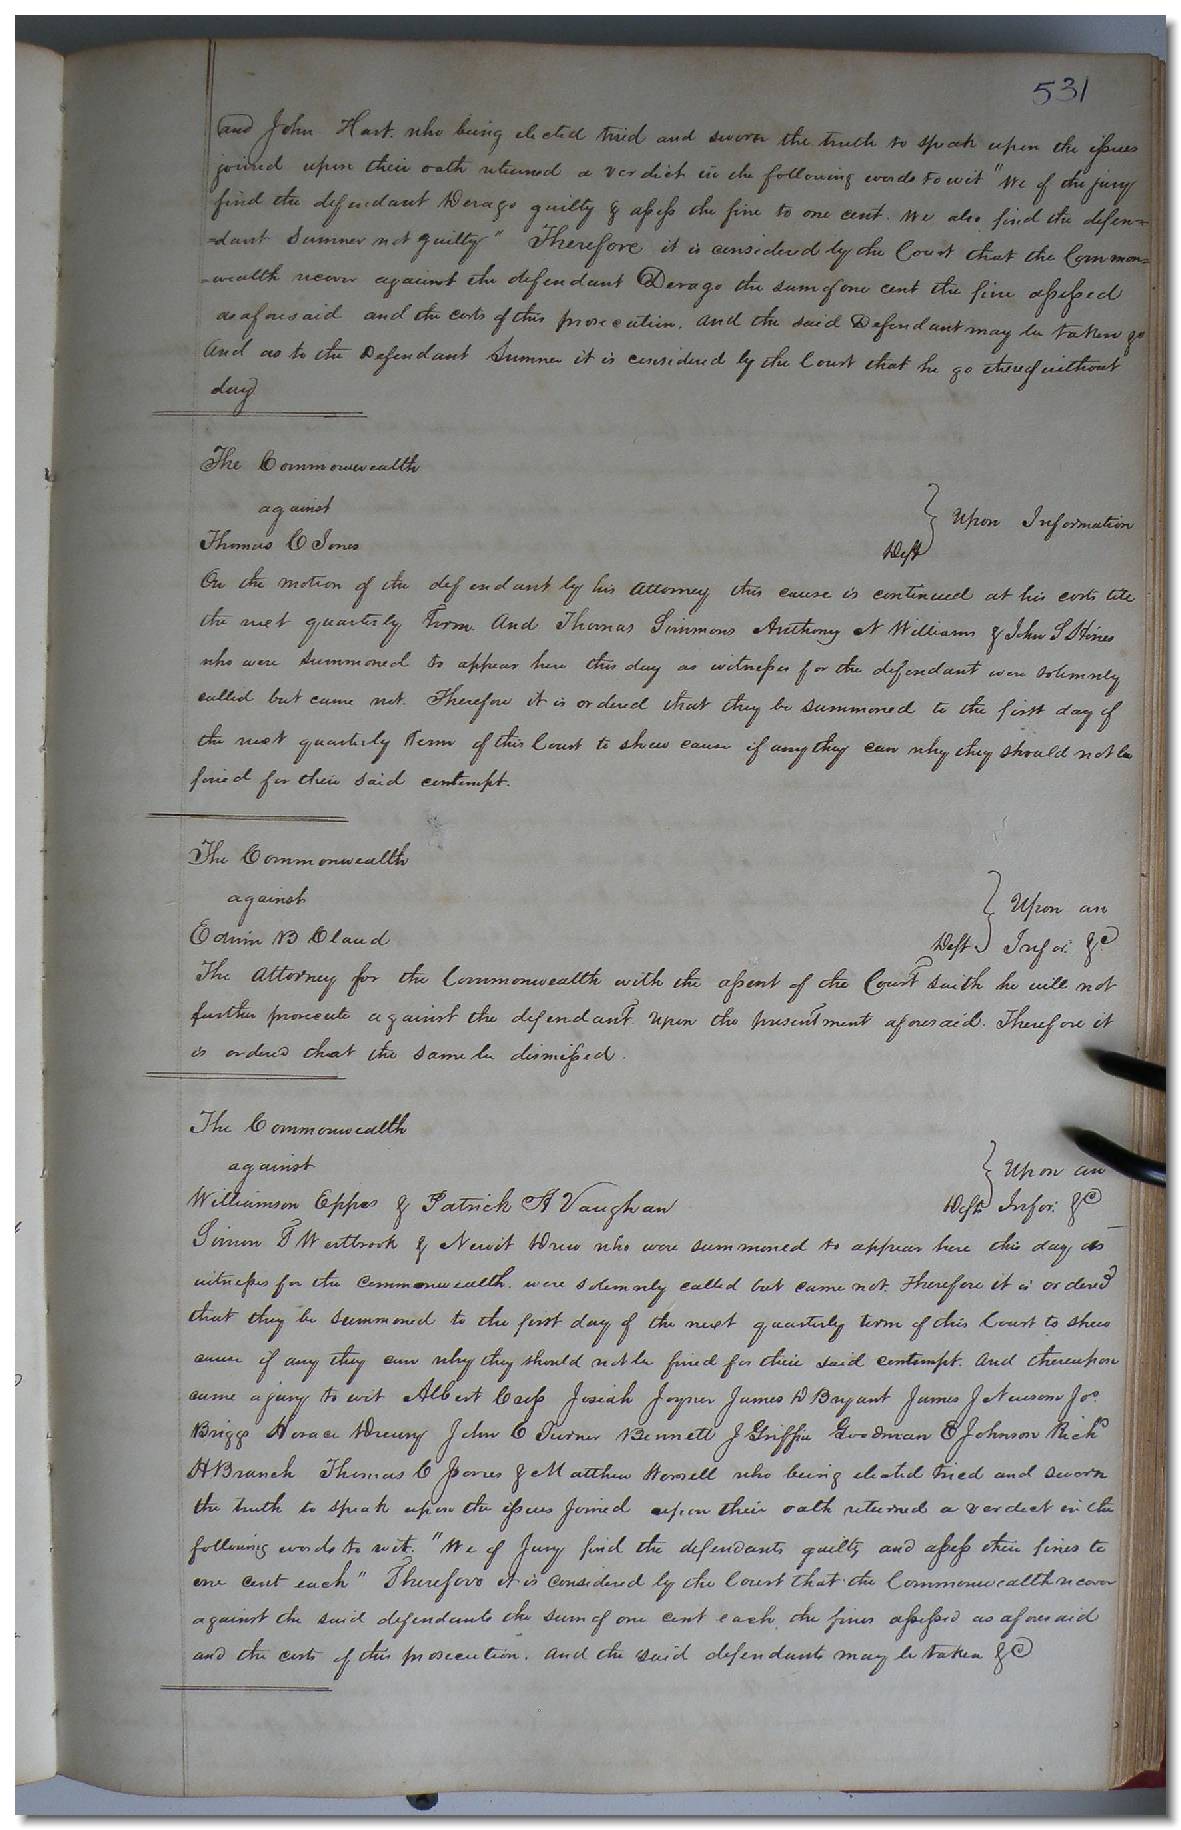 531
and John Hart. who being elected tried and sworn the truth to speak upon the issues
joined upon their oath returned a verdict in the following words to wit "We of the jury
find the defendant Derago guilty & assess the fine to one cent. We also find the defen=
=dant Sumner not guilty" Therefore it is considered by the Court that the Common=
=wealth recover against the defendant Derago the sum of one cent the fine assessed
as aforesaid and the costs of this prosecution. and the said Defendant may be taken &c
And as to the Defendant Sumner it is considered by the Court that he go thereof without
day
The Commonwealth
against
Thomas C Jones Deft } Upon Information
On the motion of the defendant by his Attorney this cause is continued at his costs till
the next quarterly Term And Thomas Simmons Anthony N Williams & John S Hines
who were summoned to appear here this day as witnesses for the defendant were solemnly
called but came not. Therefore it is ordered that they be summoned to the first day of
the next quarterly Term of this Court to shew cause if any they can why they should not be
fined for their said contempt.
The Commonwealth
against } Upon an
Edwin B Claud Deft Infor. &c
The Attorney for the Commonwealth with the assent of the Court saith he will not
further prosecute against the defendant upon the presentment aforesaid. Therefore it
is ordered that the same be dismissed.
The Commonwealth
against } Upon an
Williamson Eppes & Patrick H Vaughan Defts Infor: &c
Simon T Westbrook & Newit Drew who were summoned to appear here this day as
witnesses for the commonwealth were solemnly called but came not. Therefore it is ordered
that they be summoned to the first day of the next quarterly term of this Court to shew
cause if any they can why they should not be fined for their said contempt. And thereupon
came a jury to wit Albert Crisp Josiah Joyner James D Bryant James J Newsom Jos.
Briggs Horace Drewry John C Turner Bennett J Griffin Goodman E Johnson Richd
H Branch Thomas C Jones & Matthew Worrell who being elected tried and sworn
the truth to speak upon the issues joined upon their oath returned a verdict in the
following words to wit. "We of Jury find the defendants guilty and assess their fines to
one cent each" Therefore it is considered by the Court that the Commonwealth recover
against the said defendants the sum of one cent each, the fines assessed as aforesaid
and the costs of this prosecution. And the said defendants may be taken &c